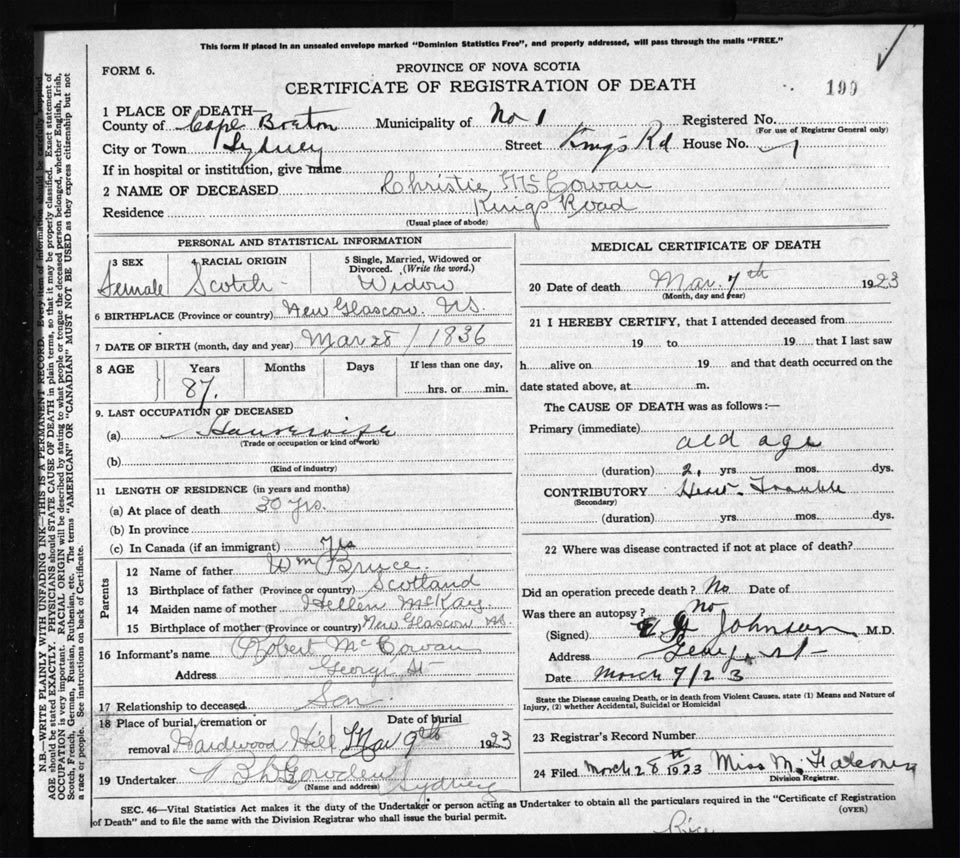 This form if placed in an unsealed envelope marked "Dominion Statistics Free", and properly addressed, will pass through the mails "FREE."
FORM 6.
PROVINCE OF NOVA SCOTIA
CERTIFICATE OF REGISTRATION OF DEATH
199
1 PLACE OF DEATH—
County of Cape Breton Municipality of No 1 Registered No.
(For use of Registrar General only)
City or Town Sydney Street Kings Rd House No.
If in hospital or institution, give name
2 NAME OF DECEASED Christie McGowan
Residence Kings Road
(Usual place of abode)
PERSONAL AND STATISTICAL INFORMATION
3 SEX 4 RACIAL ORIGIN 5 Single, Married, Widowed or Divorced. (Write the word.)
Female Scotch Widow
6 BIRTHPLACE (Province or country) New Glascow. N.S.
7 DATE OF BIRTH (month, day and year) Mar 28 / 1836
8 AGE Years Months Days If less than one day,
87. hrs. or min.
9. LAST OCCUPATION OF DECEASED
(a) Housewife
(Trade or occupation or kind of work)
(b)
(Kind of industry)
11 LENGTH OF RESIDENCE (in years and months)
(a) At place of death 30 yrs.
(b) In province
(c) In Canada (if an immigrant)
Parents
12 Name of father Wm Bruce.
13 Birthplace of father (Province or country) Scotland
14 Maiden name of mother Hellen McKay
15 Birthplace of mother (Province or country) New Glascow NS.
16 Informant's name Robert McGowan
Address George St
17 Relationship to deceased Son
18 Place of burial, cremation or removal Hardwood Hill Date of burial Mar 9th 1923
19 Undertaker Sydney
(Name and address)
MEDICAL CERTIFICATE OF DEATH
20 Date of death Mar. 7th 1923
(Month, day and year)
21 I HEREBY CERTIFY, that I attended deceased from
19 to 19 that I last saw
h alive on 19 and that death occurred on the
date stated above, at m.
The CAUSE OF DEATH was as follows:—
Primary (immediate)
old age
(duration) 2, yrs. mos. dys.
CONTRIBUTORY Heart Trouble
(Secondary)
(duration) yrs. mos. dys.
22 Where was disease contracted if not at place of death?
Did an operation precede death? No Date of
Was there an autopsy? no
(Signed) Johnson M.D.
Address George St
Date March 7/23
State the Disease causing Death, or in death from Violent Causes, state (1) Means and Nature of
Injury, (2) whether Accidental, Suicidal or Homicidal
23 Registrar's Record Number
24 Filed March 28th 1923 Miss M. Falconer
Division Registrar.
SEC. 46—Vital Statistics Act makes it the duty of the Undertaker or person acting as Undertaker to obtain all the particulars required in the "Certificate of Registration
of Death" and to file the same with the Division Registrar who shall issue the burial permit.
(OVER)
N.B.—WRITE PLAINLY WITH UNFADING INK—THIS IS A PERMANENT RECORD. Every item of information should be carefully supplied.
AGE should be stated EXACTLY. PHYSICIANS should STATE CAUSE OF DEATH in plain terms, so that it may be properly classified. Exact statement of
OCCUPATION is very important. RACIAL ORIGIN will be described by stating to what people or tongue the deceased person belonged, whether English, Irish,
Scotch, French, German, Russian, Ruthenian, etc. The terms "AMERICAN" OR "CANADIAN" MUST NOT BE USED as they express citizenship but not
a race or people. See instructions on back of Certificate.